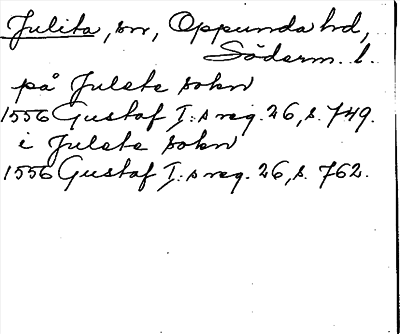 Julita, sn, Oppunda hd,
Söderm. l.
på Juleta sokn
1556 Gustaf I:s reg. 26, s. 749.
i Juleta sokn
1556 Gustaf I:s reg. 26, s. 762.